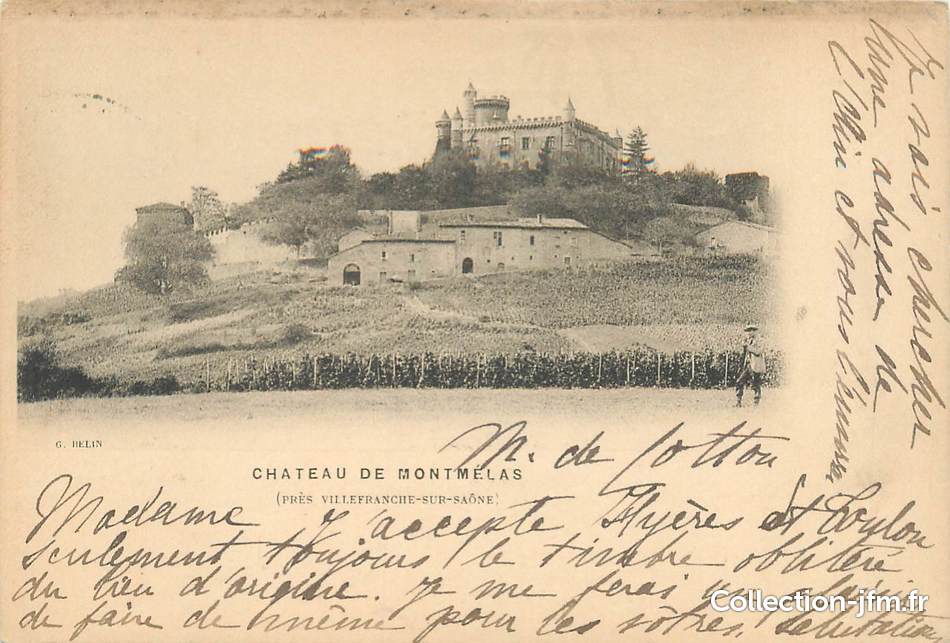 Je vais chercher
une adresse de
l'Ain et vous l'envoyer
G. BELIN
M. de Cotton
CHATEAU DE MONTMELAS
(PRÈS VILLEFRANCHE-SUR-SAÔNE)
Madame J'accepte Hyères et Toulon
seulement toujours le timbre oblitéré
du lieu d'origine. Je me ferai un plaisir
de faire de même pour les vôtres Salutations
Collection-jfm.fr